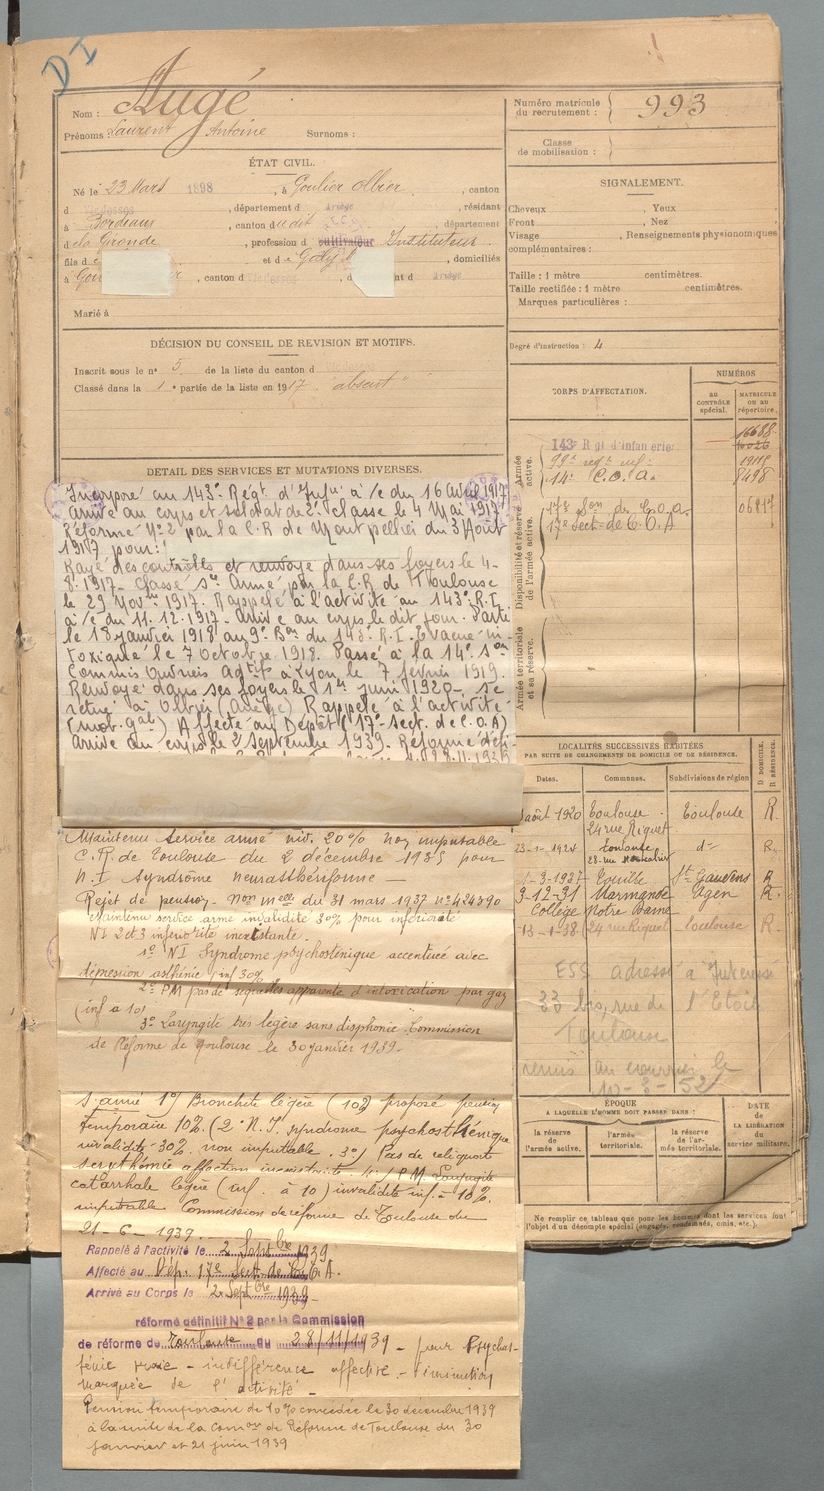 DI
Nom : Augé
Prénoms : Laurent Antoine Surnoms :
ÉTAT CIVIL.
Né le 23 Mars 1898, à Goulier Olbier, canton
d Vicdessos, département d Ariège, résidant
à Bordeaux, canton du dit, département
de la Gironde, profession d cultivateur Instituteur.
fils d et de , domiciliés
à , canton d Vicdessos, d nt d Ariège
Marié à
DÉCISION DU CONSEIL DE REVISION ET MOTIFS.
Inscrit sous le n° 5 de la liste du canton d
Classé dans la 1e partie de la liste en 1917 "absent"
DETAIL DES SERVICES ET MUTATIONS DIVERSES.
Incorporé au 143e Régt d'Infie à/c du 16 Avril 1917
Arrivé au corps et soldat de 2e classe le 4 Mai 1917
Réformé N° 2 par la C.R de Montpellier du 3 Août
1917 pour:
Rayé des contrôles et renvoyé dans ses foyers le 4-
8.1917. Classé Sce Armé par la C.R de Toulouse
le 29 Novre 1917. Rappelé à l'activité au 143e R.I.
à/c du 11.12.1917. Arrivé au corps le dit jour. Parti
le 18 janvier 1918 au 9e Bon du 143e R.I. Evacué in-
toxiqué le 7 Octobre 1918. Passé à la 14e Son
Commis Ouvriers à Lyon le 7 février 1919.
Renvoyé dans ses foyers le 1er juin 1920, se
retire à Olbier (Ariège) Rappelé à l'activité
(mob. gale) Affecté au Dépôt (17e Sect. de C.O.A)
Arrivé au corps le 2 Septembre 1939. Réformé défi-
Maintenu service armé inv. 20% non imputable
C.R. de Toulouse du 2 décembre 1935 pour
N.I Syndrome neurasthéniforme —
Rejet de pension - Non melle du 31 mars 1937 n° 424390
Maintenu service armé invalidité 30% pour infériorité
NI 2 et 3 infériorité inexistante.
1° NI Syndrome psychosténique accentuée avec
dépression asthénie (inf 30%
2° PM pas de séquelles apparente d'intoxication par gaz
(inf à 10)
3° Laryngite très légère sans disphonie. Commission
de Réforme de Toulouse le 30 janvier 1939-
S. armé 1°) Bronchite légère (10%) proposé pension
temporaire 10%. (2° N.I. syndrome psychosthénique
invalidité 30% non imputable. 3°) Pas de reliquats
affection inexistante P.M. Laryngite
catarrhale légère (inf. à 10) invalidité inf. à 10%
imputable. Commission de réforme de Toulouse du
21-6-1939.
Rappelé à l'activité le 2 Septbre 1939
Affecté au Dép. 17e Sect. de C.O.A.
Arrivé au Corps le 2 Septbre 1939
réformé définitif N° 2 par la Commission
de réforme de Toulouse du 28/11/1939 - pour Psychas-
ténie vraie - indifférence affective - diminution
marquée de l'activité -
Pension temporaire de 10% concédée le 30 décembre 1939
à la suite de la Comon de Réforme de Toulouse du 30
janvier et 21 juin 1939
Numéro matricule du recrutement : 993
Classe de mobilisation :
SIGNALEMENT.
Cheveux , Yeux
Front , Nez
Visage , Renseignements physionomiques
complémentaires :
Taille : 1 mètre centimètres.
Taille rectifiée : 1 mètre centimètres.
Marques particulières :
Degré d'instruction : 4
CORPS D'AFFECTATION.
NUMÉROS
AU CONTRÔLE spécial.
MATRICULE OU AU répertoire.
Armée active.
143e Rgt d'infanterie 16688
99e regt inf.
14e C.O.A. 8498
Disponibilité et réserve de l'armée active.
17e Son de C.O.a.
17e Sect. de C.O.A
Armée territoriale et sa réserve.
LOCALITÉS SUCCESSIVES HABITÉES
PAR SUITE DE CHANGEMENTS DE DOMICILE OU DE RÉSIDENCE.
Dates. Communes. Subdivisions de région D DOMICILE. R RÉSIDENCE.
août 1920 Toulouse. 24 rue Riquet Toulouse R.
23-1-1924 Toulouse d° R.
1-3-1927 St Gaudens R
9-12-31 Marmande Agen R.
Collège Notre Dame
13-1-38 24 rue Riquet Toulouse R.
ESS adressé à
33 bis, rue de l'Etoile
Toulouse
remis au courrier le
10-3-52
ÉPOQUE
A LAQUELLE L'HOMME DOIT PASSER DANS :
la réserve de l'armée active.
l'armée territoriale.
la réserve de l'armée territoriale.
DATE de LA LIBÉRATION du service militaire.
Ne remplir ce tableau que pour les hommes dont les services font
l'objet d'un décompte spécial (engagés, condamnés, omis, etc.).